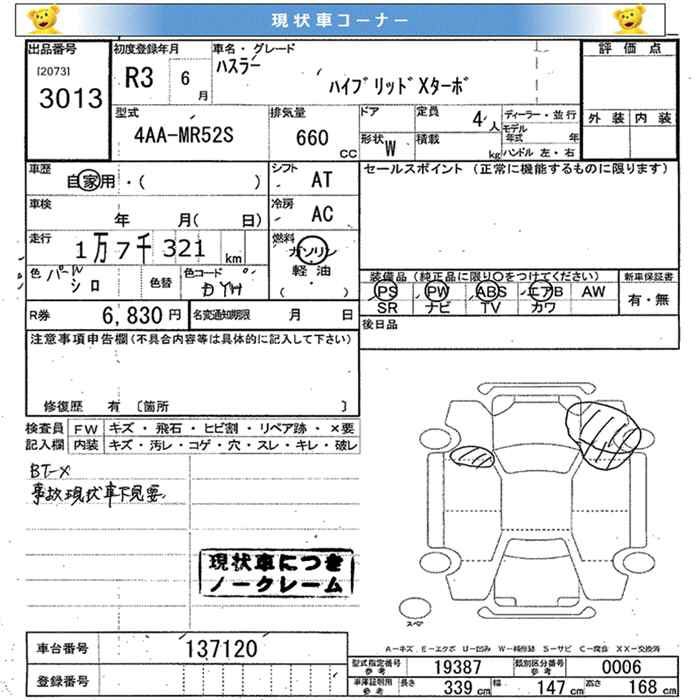 現状車コーナー
出品番号 初度登録年月 車名・グレード 評価点
[2073] ハスラー
3013 R3 6月 ハイブリッドXターボ
型式 排気量 ドア 定員 4人 ディーラー・並行 外装 内装
4AA-MR52S 660 CC 形状 W 積載 kg モデル年式 年
ハンドル 左・右
車歴 自家用・( ) シフト AT セールスポイント (正常に機能するものに限ります)
車検 年 月( 日) 冷房 AC
走行 1万7千321 km 燃料 ガソリン
軽油
( )
色 パール シロ 色替 色コード 装備品 (純正品に限り○をつけてください) 新車保証書
PS PW ABS エアB AW 有・無
SR ナビ TV カワ
R券 6,830円 名変通知期限 月 日 後日品
注意事項申告欄(不具合内容等は具体的に記入して下さい)
修復歴 有 〔箇所 〕
検査員 FW キズ・飛石・ヒビ割・リペア跡・×要
記入欄 内装 キズ・汚レ・コゲ・穴・スレ・キレ・破レ
BT-X
事故現状車下見要
現状車につき
ノークレーム
スペア
A-キズ E-エクボ U-凹み W-補修跡 S-サビ C-腐食 XX-交換済
車台番号 137120
登録番号
型式指定番号 参考 19387 類別区分番号 参考 0006
車庫証明用 参考 長さ 339cm 幅 147cm 高さ 168cm